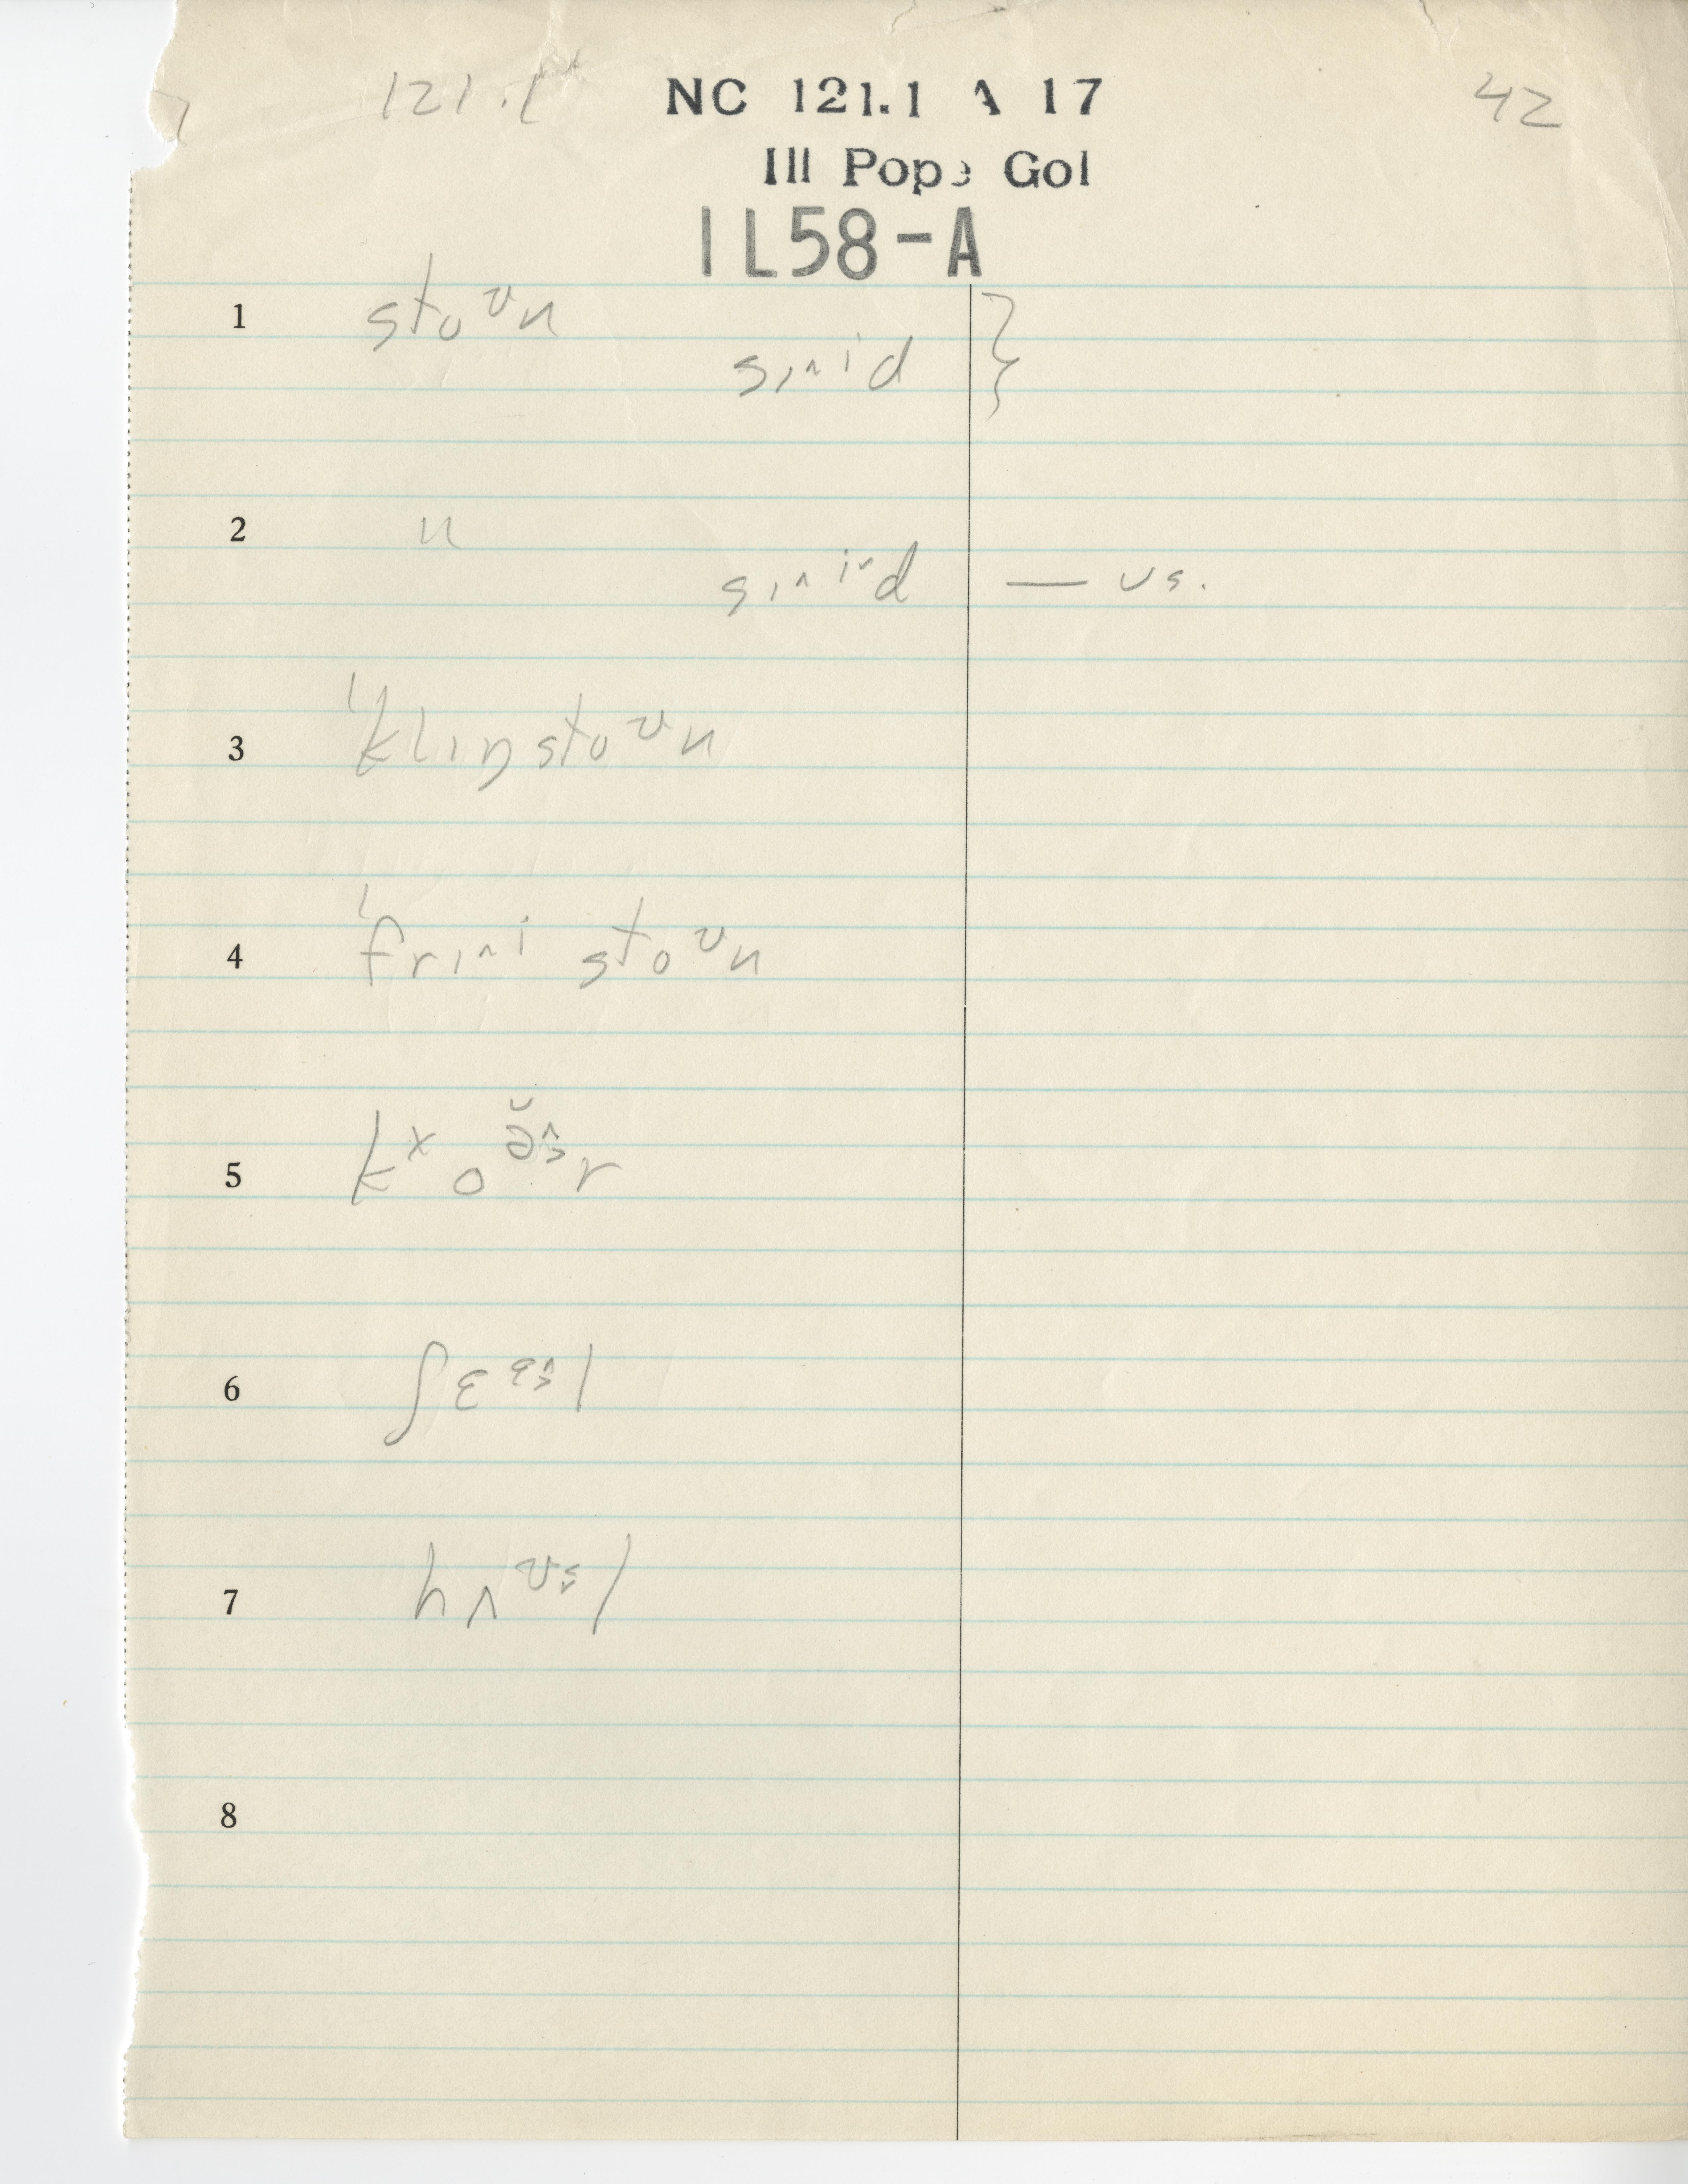 121.1 NC 121.1 A 17 42
Ill Pope Gol
1L58-A
1 stoᶷn }
sɪ˄ⁱd
2 n
sɪ˄ⁱ˅d — vs.
3 ˈklɪŋstoᶷn
4 ˈfrɪ˄ⁱ stoᶷn
5 kˣoᵊ̆r
6 ʃɛᵋl
7 hʌᶷl
8